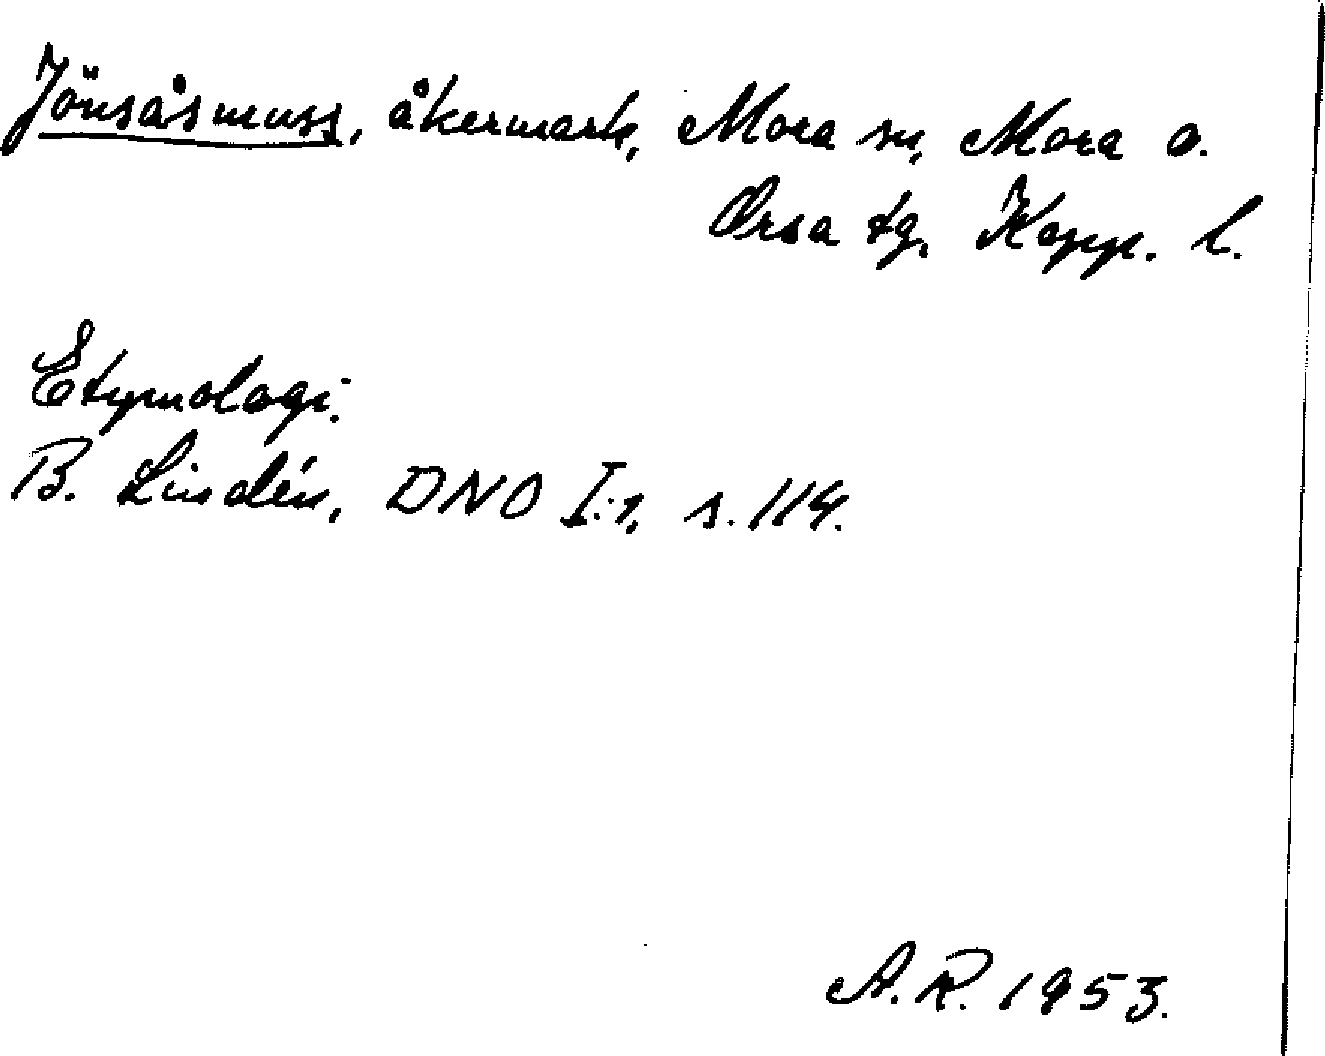 Jönsåsmuss, åkermark, Mora sn, Mora o.
Orsa tg, Kopp. l.
Etymologi:
B. Lindén, DNO I:1, s. 114.
A.R. 1953.